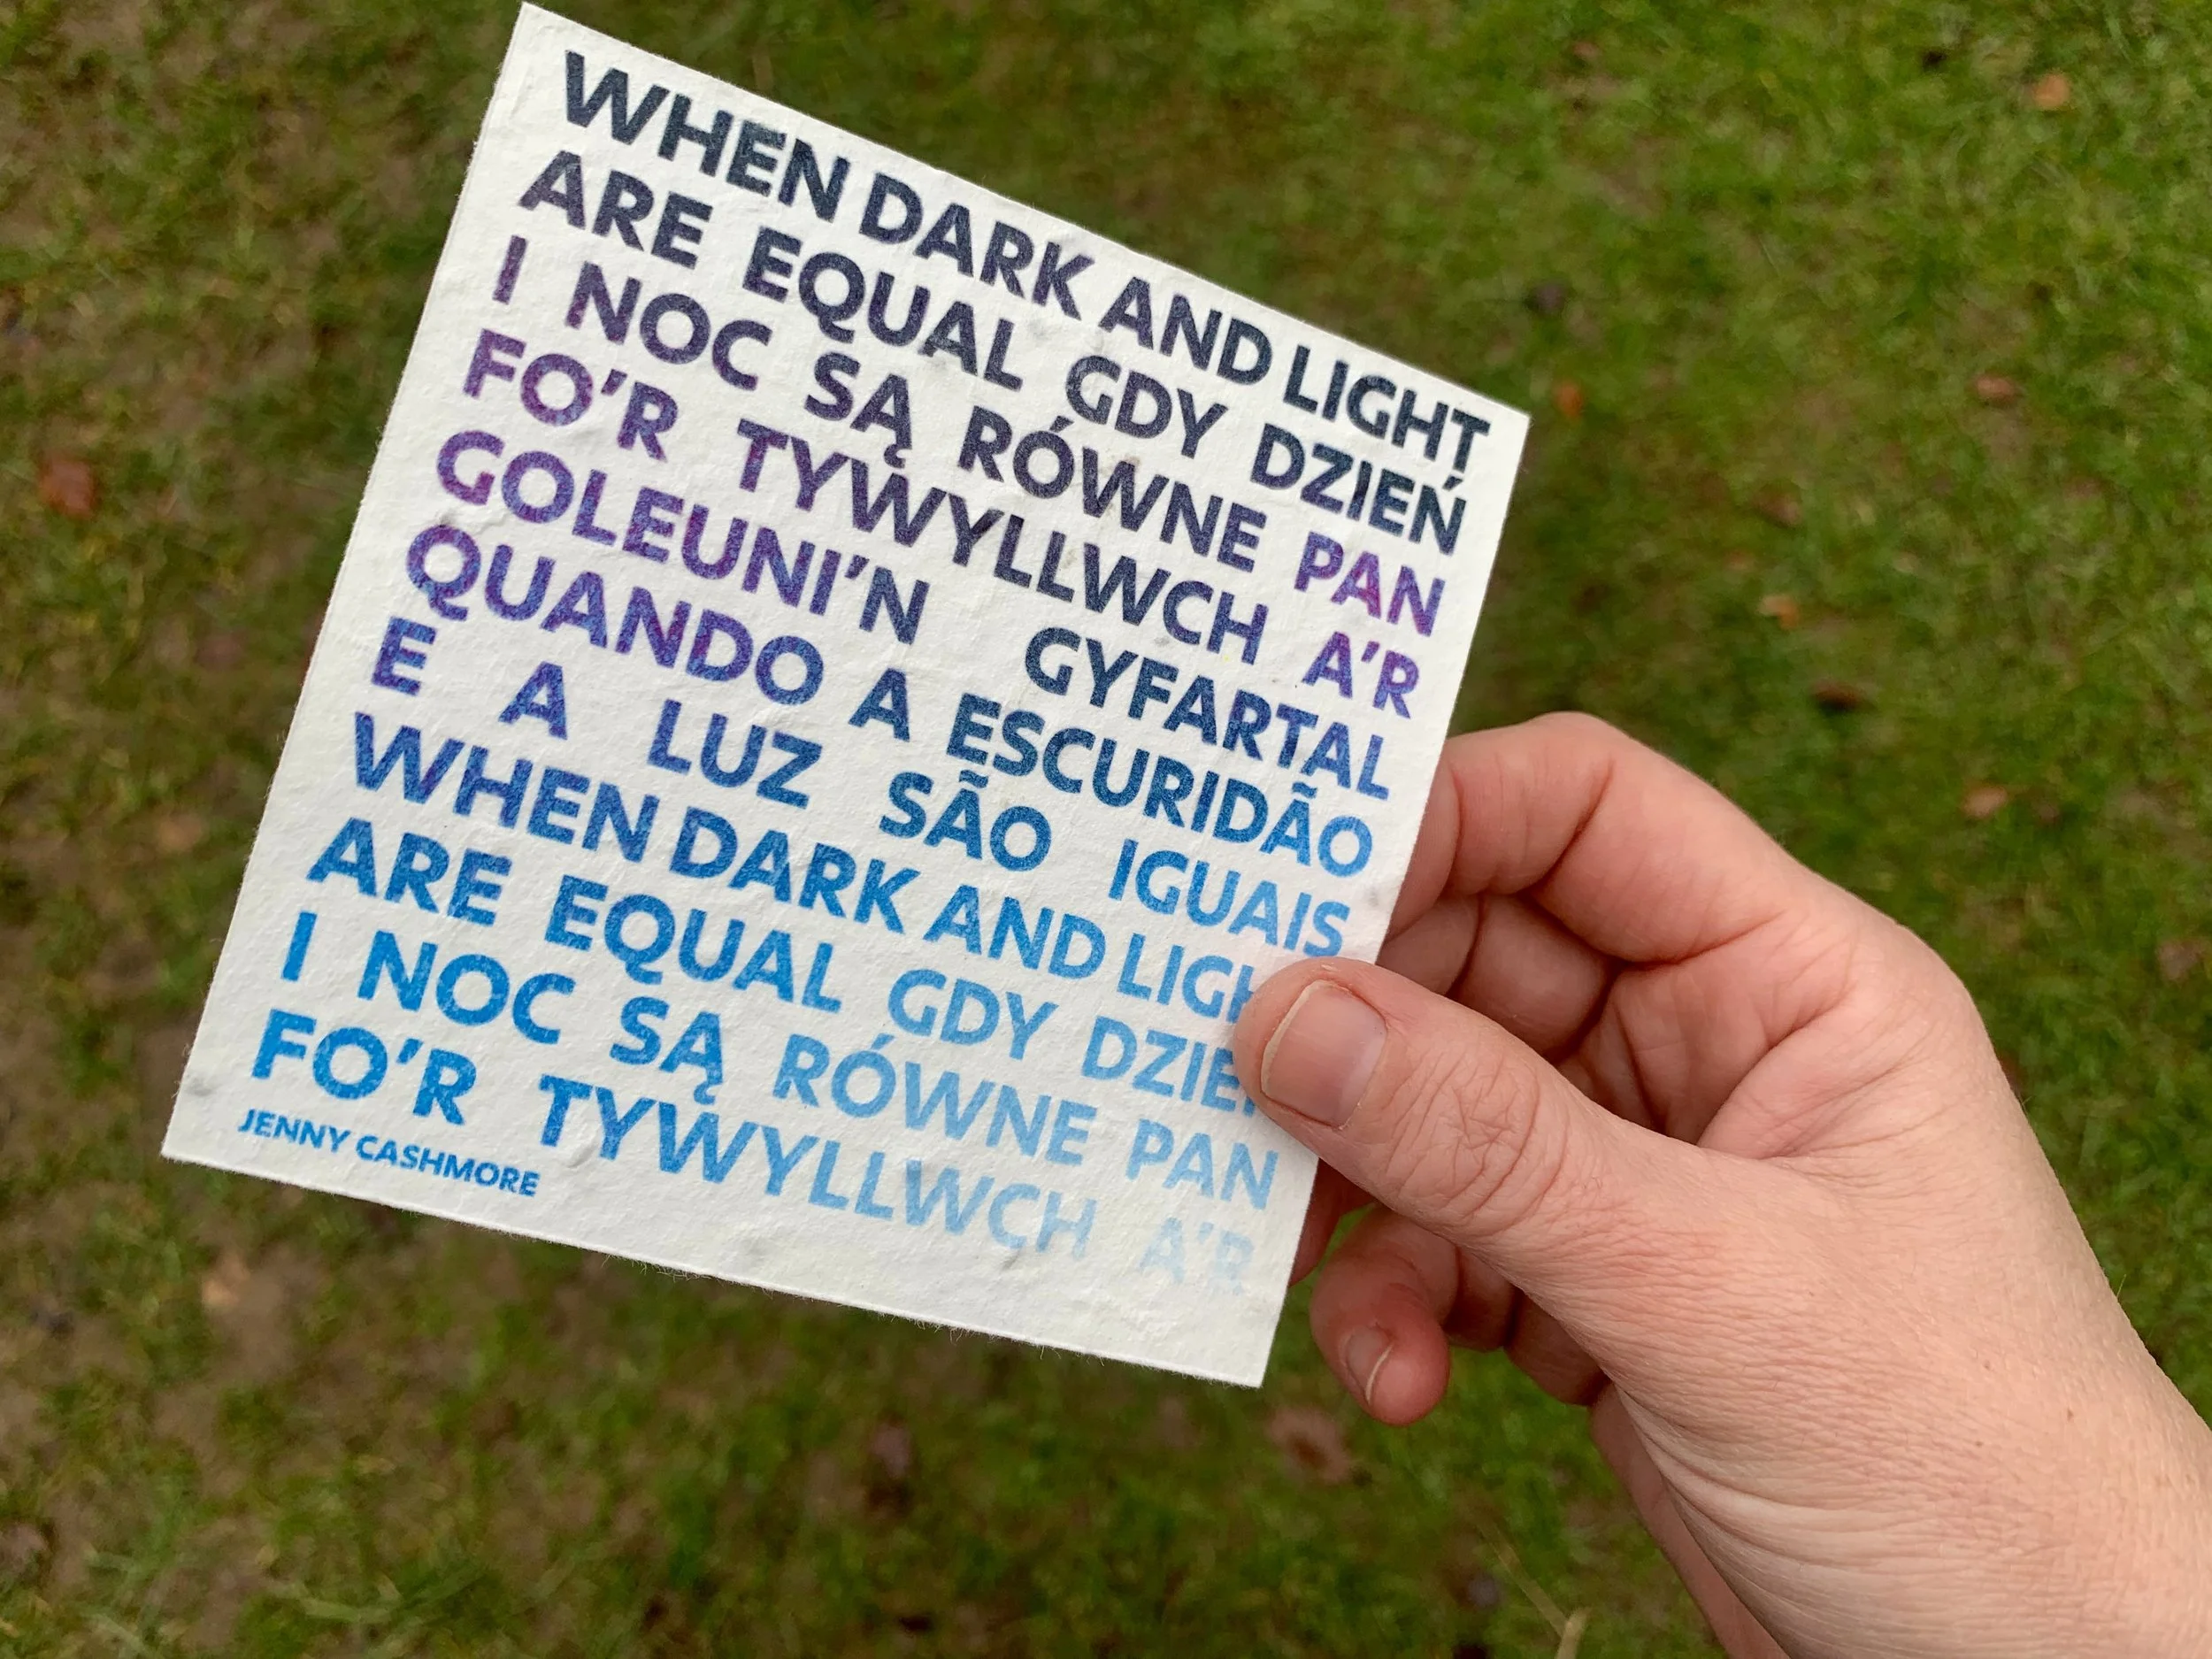 WHEN DARK AND LIGHT
ARE EQUAL GDY DZIEŃ
I NOC SĄ RÓWNE PAN
FO'R TYWYLLWCH A'R
GOLEUNI'N GYFARTAL
QUANDO A ESCURIDÃO
E A LUZ SÃO IGUAIS
WHEN DARK AND LIGH
ARE EQUAL GDY DZIE
I NOC SĄ RÓWNE PAN
FO'R TYWYLLWCH A'R
JENNY CASHMORE